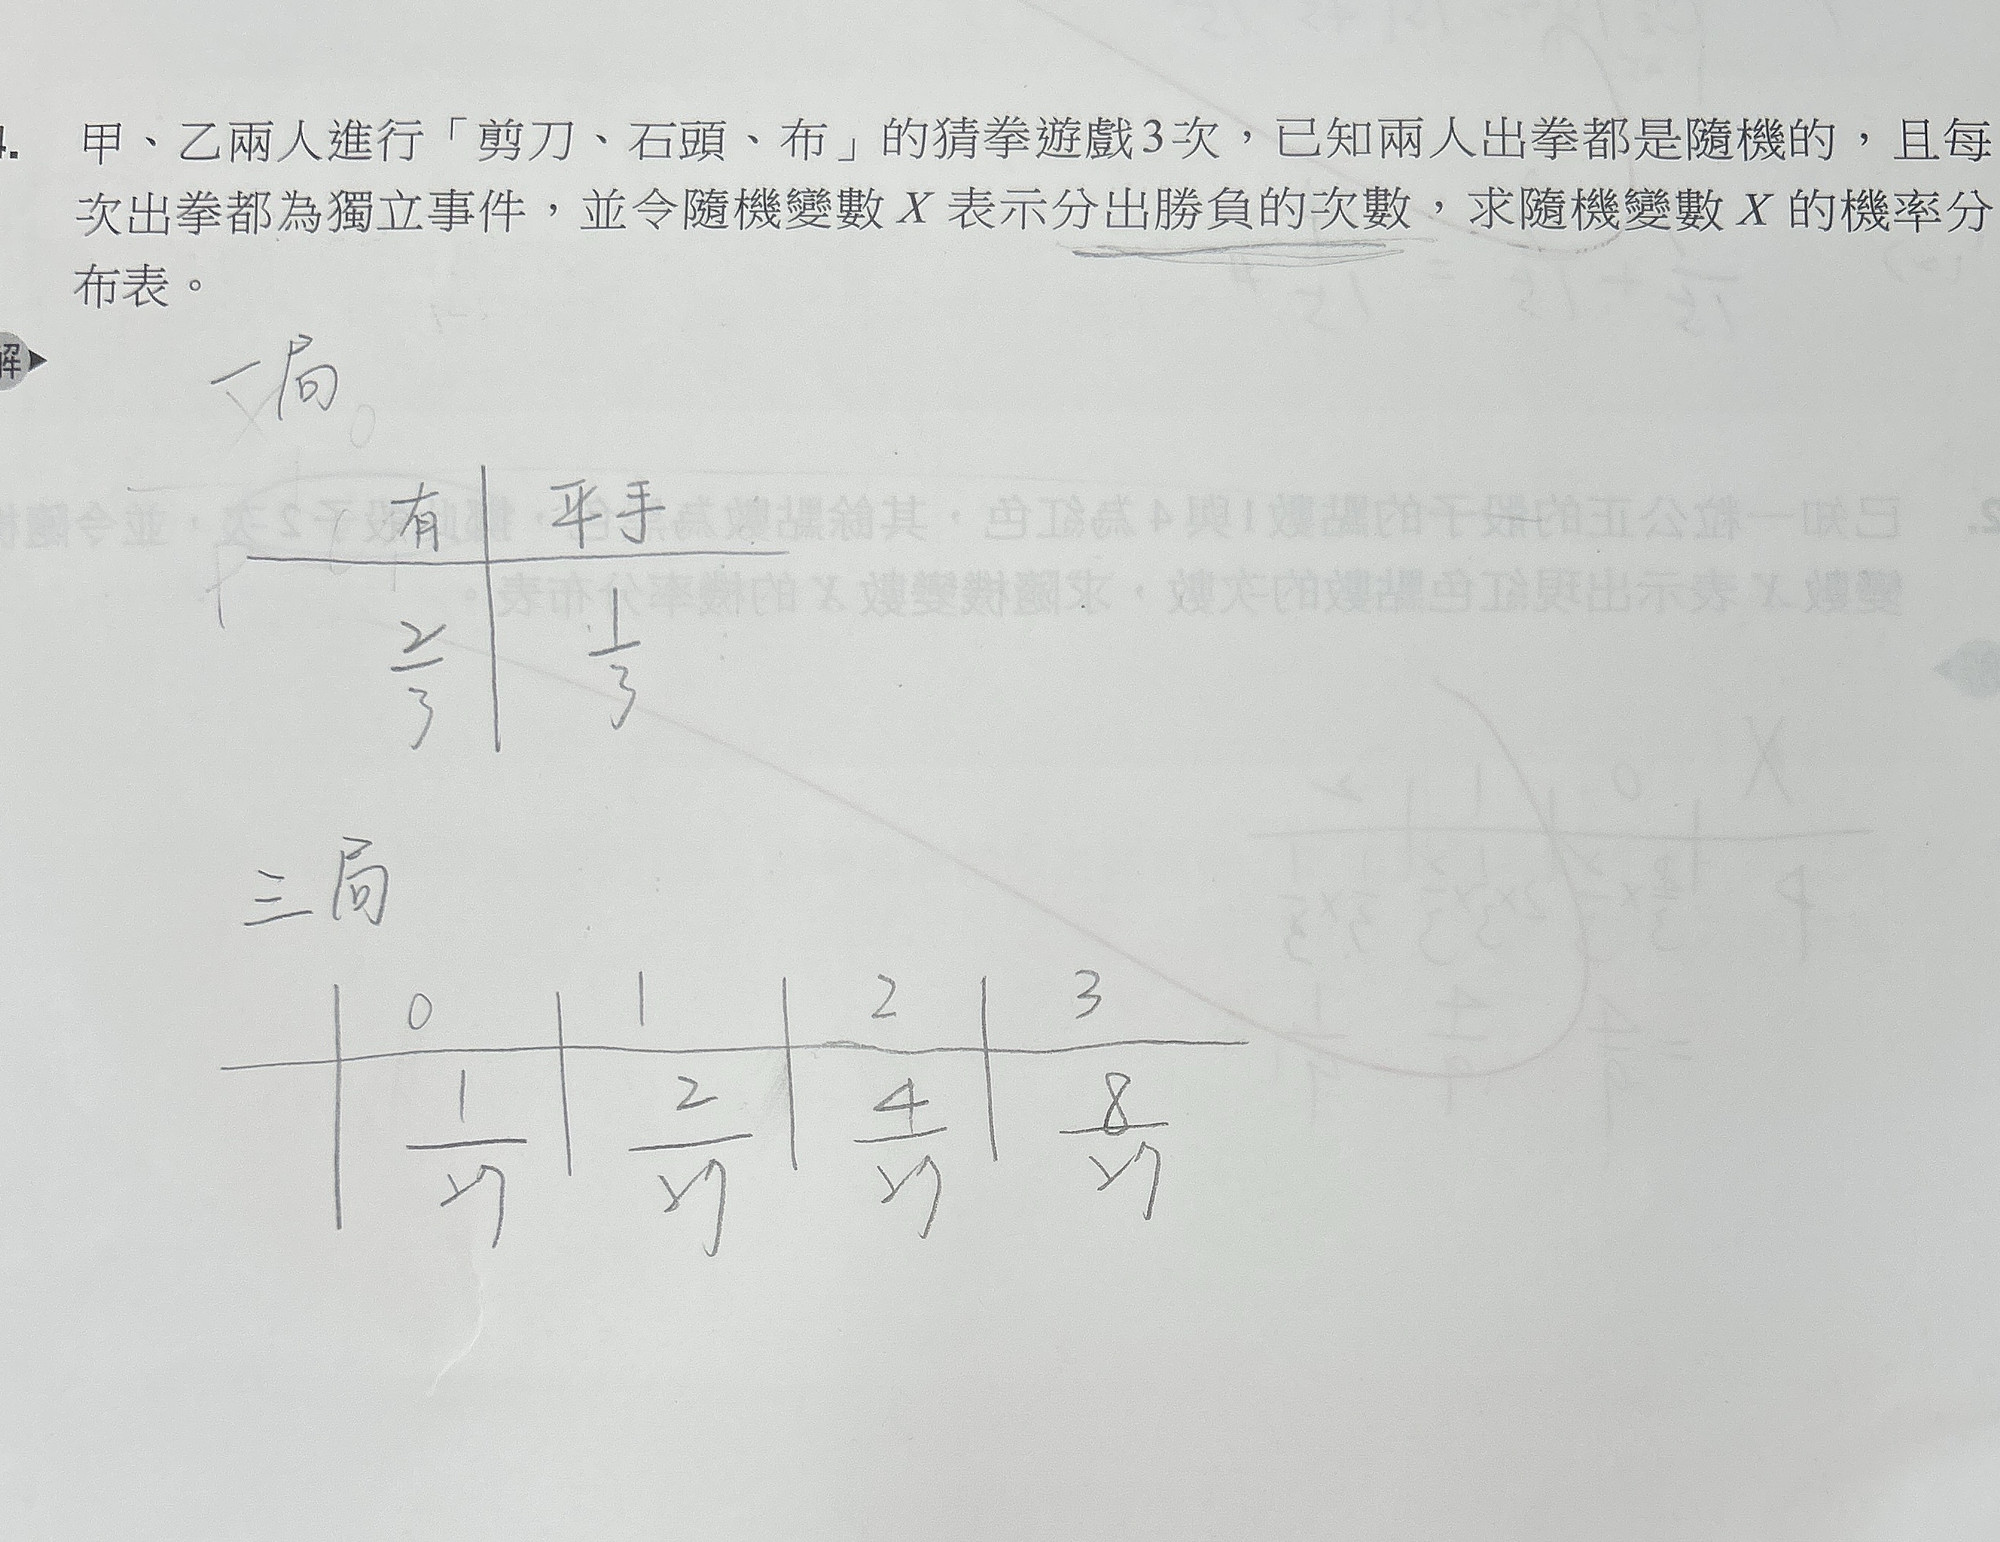 甲、乙兩人進行「剪刀、石頭、布」的猜拳遊戲3次，已知兩人出拳都是隨機的，且每
次出拳都為獨立事件，並令隨機變數 X 表示分出勝負的次數，求隨機變數 X 的機率分
布表。
解
一局
有 平手
2/3 1/3
三局
0 1 2 3
1/27 2/27 4/27 8/27